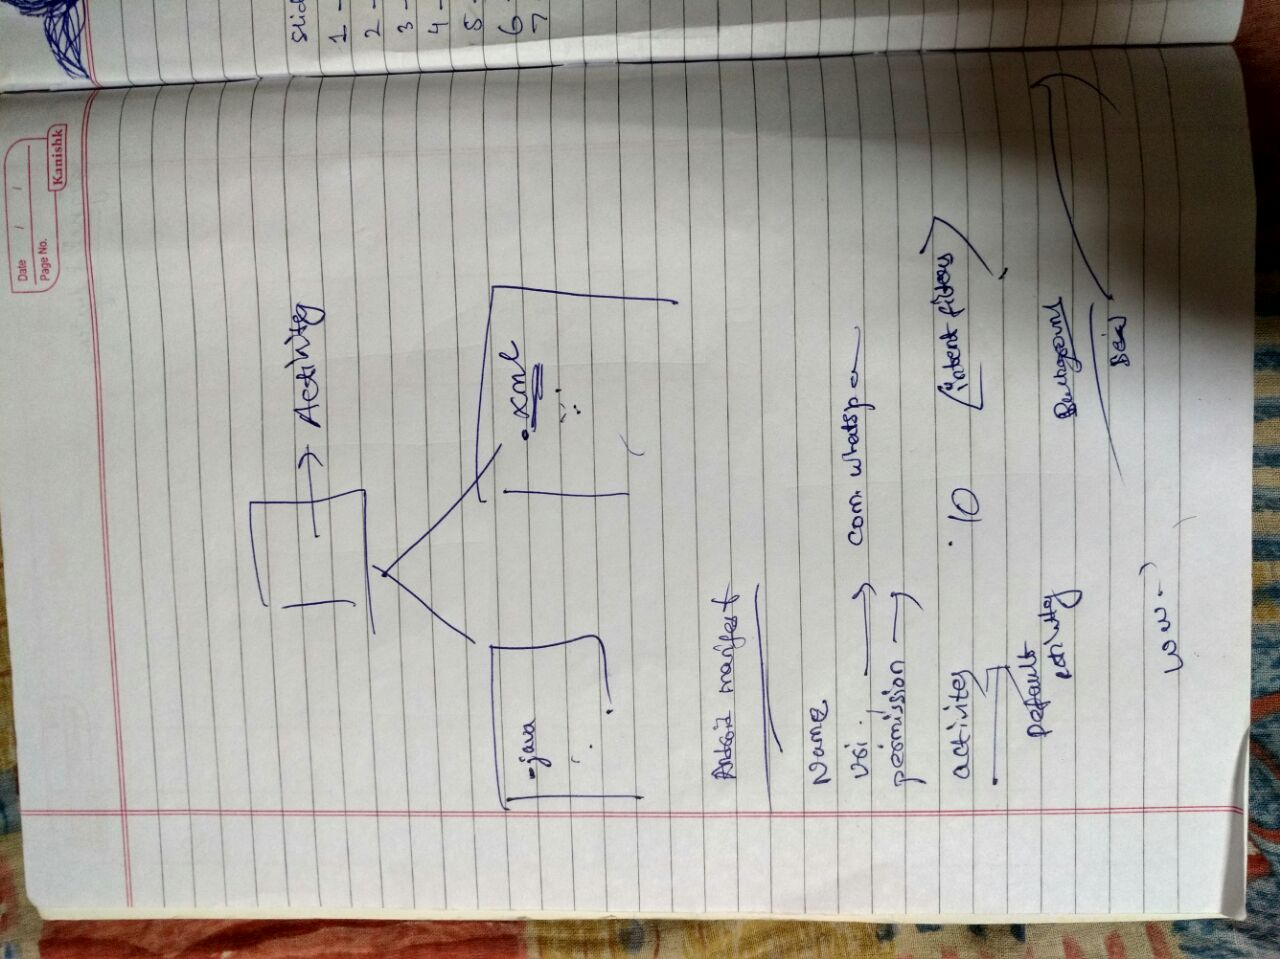 Date / /
Page No.
Kanishk
Activity
.java
.xml
Android manifest
Name
permission
com. whatspa
activites 10 intent filters
Default
activity
Background
slid
1 -
2 -
3 -
4 -
5 -
6 -
7